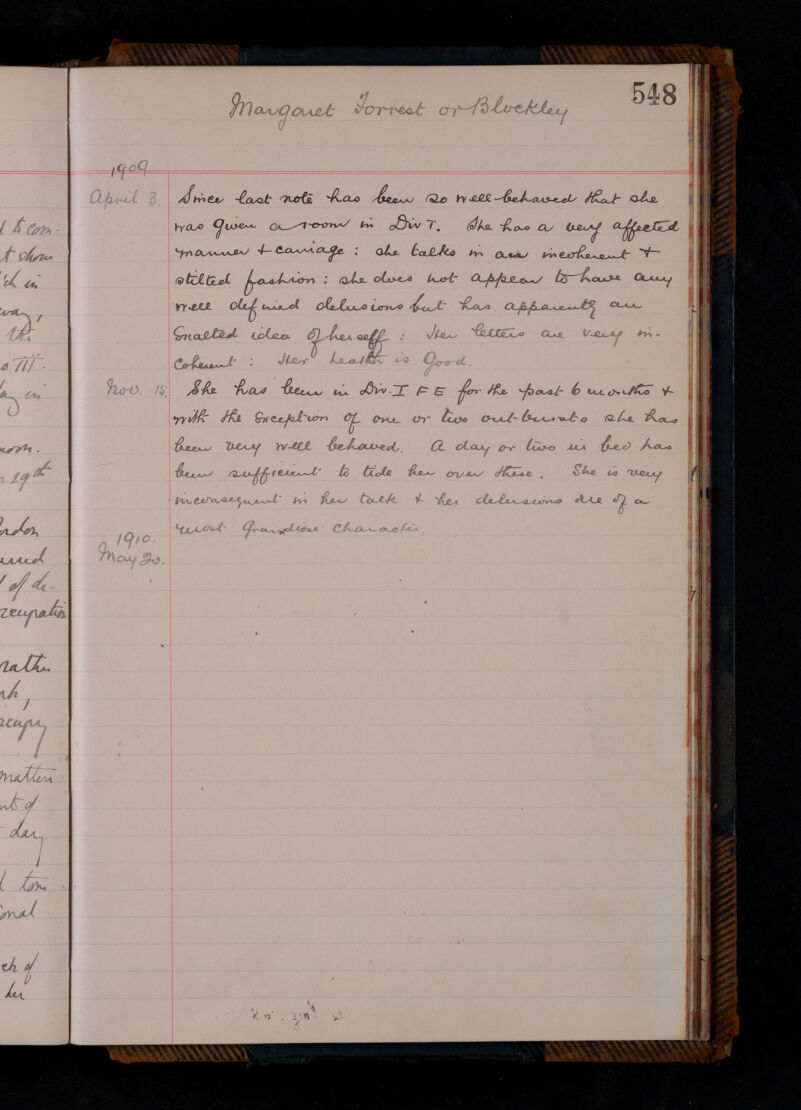 548
Margaret Forrest or Blockley
1909.
April 3. Since last note has been so well-behaved that she
was given a room in Div T. She has a very affected
manner & carriage : she talks in an incoherent &
stilted fashion : she does not appear to have any
well defined delusions but has apparently an
Exalted idea of herself : Her letters are very in-
coherent : Her health is Good.
Nov. 15. She has been in Div. I F E for the past 6 months &
with the Exception of one or two out-bursts she has
been very well behaved. A day or two in bed has
been sufficient to tide her over these. She is very
inconsequent in her talk & her delusions are of a
most Grandiose Character.
1910.
May 20.
d to com-
t show
'd in
way,
the
o III.
day in
noon.
29th
ordon
of de-
ccupation
rather
rk,
occupy
matten
nt of
day
onal
ch of
her